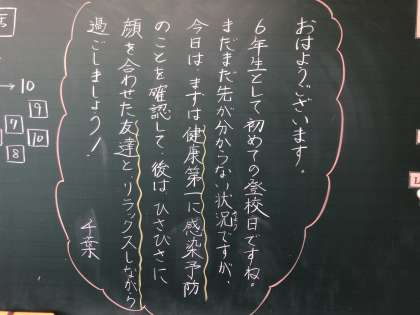 おはようございます。
6年生として初めての登校日ですね。
まだまだ先が分からない状況ですが、
今日は、まずは健康第一に感染予防
のことを確認して、後はひさびさに
顔を合わせた友達とリラックスしながら
過ごしましょう!
千葉
→10
9
7
10
8